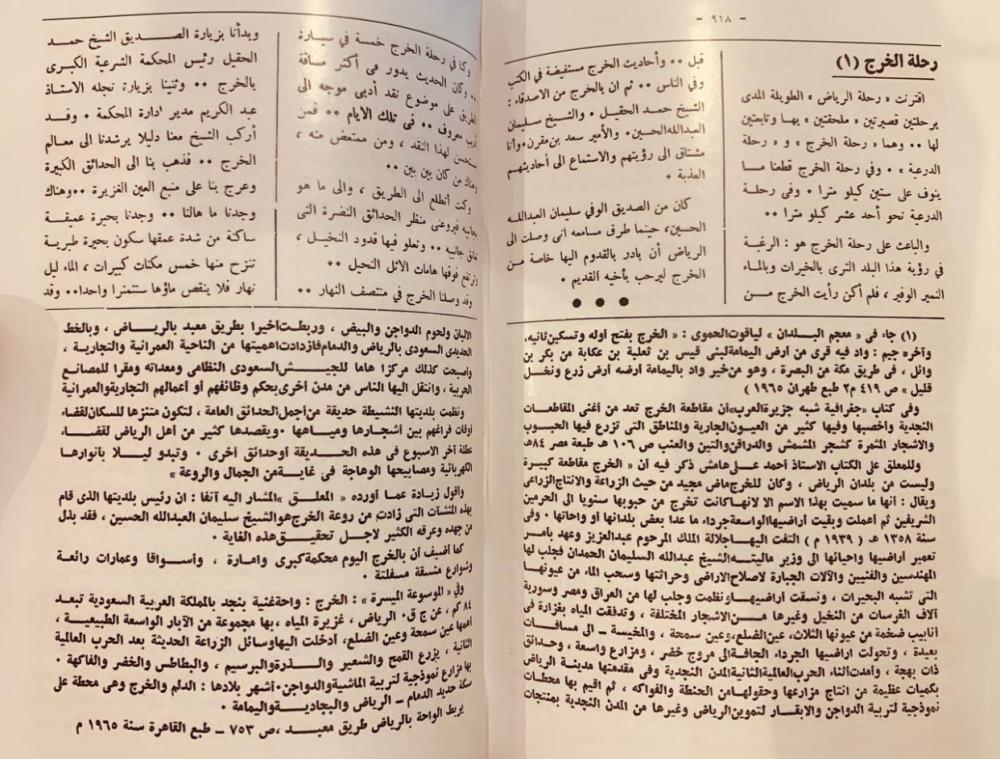 - ٩١٨ -
رحلة الخرج (١)
اقترنت « رحلة الرياض » الطويلة المدى
برحلتين قصيرتين « ملحقتين » بها وتابعتين
لها ٠٠ وهما « رحلة الخرج » و « رحلة
الدرعية » ٠ وفي رحلة الخرج قطعنا ما
ينوف على ستين كيلو مترا ٠ وفي رحلة
الدرعية نحو أحد عشر كيلو مترا ٠٠
والباعث على رحلة الخرج هو : الرغبة
في رؤية هذا البلد الثرى بالخيرات وبالماء
النمير الوفير ، فلم أكن رأيت الخرج من
قبل ٠٠ وأحاديث الخرج مستفيضة في الكتب
وفي الناس ٠٠ ثم ان بالخرج من الاصدقاء :
الشيخ حمد الحقيل ٠ والشيخ سليمان
العبدالله الحسين ٠ والأمير سعد بن مقرن ٠ وأنا
مشتاق الى رؤيتهم والاستماع الى أحاديثهم
العذبة ٠
كان من الصديق الوفي سليمان العبدالله
الحسين، حينما طرف مسامعه انى وصلت الى
الرياض أن بادر بالقدوم اليها خاصة من
الخرج ليرحب بأخيه القديم ٠
● ● ●
(١) جاء فى « معجم البلدان » لياقوت الحموى : « الخرج بفتح أوله وتسكين ثانيه،
وآخره جيم : واد فيه قرى من أرض اليمامة لبنى قيس بن ثعلبة بن عكابة من بكر بن
وائل ، في طريق مكة من البصرة ، وهو من خير واد باليمامة ارضه أرض زرع ونخل
قليل » ص ٤١٩ م٢ طبع طهران ١٩٦٥ )
وفى كتاب « جغرافية شبه جزيرة العرب » أن مقاطعة الخرج تعد من أغنى المقاطعات
النجدية وأخصبها وفيها كثير من العيون الجارية والمناطق التى تزرع فيها الحبوب
والاشجار المثمرة كشجر المشمش والدراقن والتين والعنب ص ١٠٦ هـ طبعة مصر ٨٤هـ
وللمعلق على الكتاب الاستاذ أحمد على هامش ذكر فيه أن « الخرج مقاطعة كبيرة
وليست من بلدان الرياض ، وكان للخرج ماض مجيد من حيث الزراعة والانتاج الزراعى
ويقال : أنها ما سميت بهذا الاسم الا لانها كانت تخرج من حبوبها سنويا الى الحرمين
الشريفين ثم أهملت وبقيت أراضيها الواسعة جرداء ما عدا بعض بلدانها او واحاتها ٠ وفى
سنة ١٣٥٨ هـ ( ١٩٣٩ م ) التفت اليها جلالة الملك المرحوم عبدالعزيز وعهد بامر
تعمير أراضيها واحيائها الى وزير ماليته الشيخ عبدالله السليمان الحمدان فجلب لها
المهندسين والفنيين والآلات الجبارة لاصلاح الاراضى وحراثتها وسحب الماء من عيونها
التى تشبه البحيرات ، ونسقت أراضيها ونظمت وجلب لها من العراق ومصر وسورية
آلاف الغرسات من النخيل وغيرها من الاشجار المختلفة ، وتدفقت المياه بغزارة فى
أنابيب ضخمة من عيونها الثلاث، عين الضلع، وعين سمحة ، والمخيسة ـ الى مسافات
بعيدة ، وتحولت اراضيها الجرداء الجافة الى مروج خضر ، ومزارع واسعة ، وحدائق
ذات بهجة ، وأمدت أثناء الحرب العالمية الثانية المدن النجدية وفى مقدمتها مدينة الرياض
بكميات عظيمة من انتاج مزارعها وحقولها من الحنطة والفواكه ، ثم أقيم بها محطات
نموذجية لتربية الدواجن والابقار لتموين الرياض وغيرها من المدن النجدية بمنتجات
وكنا في رحلة الخرج خمسة في سيارة
٠٠ وكان الحديث يدور فى أكثر مسافة
الطريق على موضوع نقد أدبى موجه الى
أديب معروف ٠٠ فى تلك الايام ٠٠ فمن
مستحسن لهذا النقد ، ومن ممتعض منه ،
وهناك من كان بين بين ٠٠
وكنت أتطلع إلى الطريق ، والى ما هو
بجانبيه فيروعنى منظر الحدائق النضرة التى
تعانق جانبيه ٠٠ وتعلو فيها قدود النخيل ،
وترتفع فوقها هامات الاثل النحيل ٠٠
وقد وصلنا الخرج في منتصف النهار ٠٠
وبدأنا بزيارة الصديق الشيخ حمد
الحقيل رئيس المحكمة الشرعية الكبرى
بالخرج ٠٠ وثنينا بزيارة نجله الاستاذ
عبد الكريم مدير ادارة المحكمة ٠ وقد
أركب الشيخ معنا دليلا يرشدنا الى معالم
الخرج ٠٠ فذهب بنا الى الحدائق الكبيرة
وعرج بنا على منبع العين الغزيرة ٠٠ وهناك
وجدنا ما هالنا ٠٠ وجدنا بحيرة عميقة
ساكنة من شدة عمقها سكون بحيرة طبرية
تنزح منها خمس مكنات كبيرات ، الماء ليل
نهار فلا ينقص ماؤها سنتمترا واحدا ٠٠ وقد
الالبان ولحوم الدواجن والبيض ، وربطت أخيرا بطريق معبد بالرياض ، وبالخط
الحديدى السعودى بالرياض والدمام فازدادت أهميتها من الناحية العمرانية والتجارية ،
وأصبحت كذلك مركزا هاما للجيش السعودى النظامى ومعداته ومقرا للمصانع
العربية ، وانتقل اليها الناس من مدن أخرى بحكم وظائفهم أو أعمالهم التجارية والعمرانية
ونظمت بلديتها النشيطة حديقة من أجمل الحدائق العامة ، لتكون منتزها للسكان لقضاء
أوقات فراغهم بين أشجارها ومياهها ٠ ويقصدها كثير من أهل الرياض لقضاء
عطلة آخر الاسبوع فى هذه الحديقة أو حدائق أخرى ٠ وتبدو ليلا بأنوارها
الكهربائية ومصابيحها الوهاجة فى غاية من الجمال والروعة »
وأقول زيادة عما أورده « المعلق » المشار اليه آنفا : ان رئيس بلديتها الذى قام
بهذه المنشآت التى زادت من روعة الخرج هو الشيخ سليمان العبدالله الحسين ، فقد بذل
من جهده وعرقه الكثير لأجل تحقيق هذه الغاية ٠
كما أضيف أن بالخرج اليوم محكمة كبرى وامارة ، وأسواقا وعمارات رائعة
وشوارع منسقة مسفلتة ٠
وفي « الموسوعة الميسرة » : الخرج : واحة غنية بنجد بالمملكة العربية السعودية تبعد
٨٤ كم ، عن ج ق٠ الرياض ، غزيرة المياه ، بها مجموعة من الآبار الواسعة الطبيعية ،
أهمها عين سمحة وعين الضلع، أدخلت اليها وسائل الزراعة الحديثة بعد الحرب العالمية
الثانية ، يزرع القمح والشعير والذرة والبرسيم ، والبطاطس والخضر والفاكهة ٠
بها مزارع نموذجية لتربية الماشية والدواجن ٠ أشهر بلادها : الدلم والخرج وهى محطة على
سكة حديد الدمام ـ الرياض والبجادية واليمامة ٠
يربط الواحة بالرياض طريق معبد ، ص ٧٥٣ ـ طبع القاهرة سنة ١٩٦٥ م